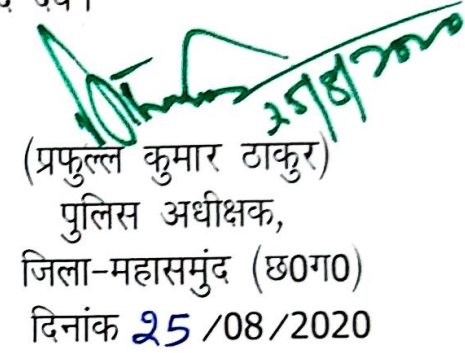 25/8/2020
(प्रफुल्ल कुमार ठाकुर)
पुलिस अधीक्षक,
जिला-महासमुंद (छ0ग0)
दिनांक 25 /08/2020